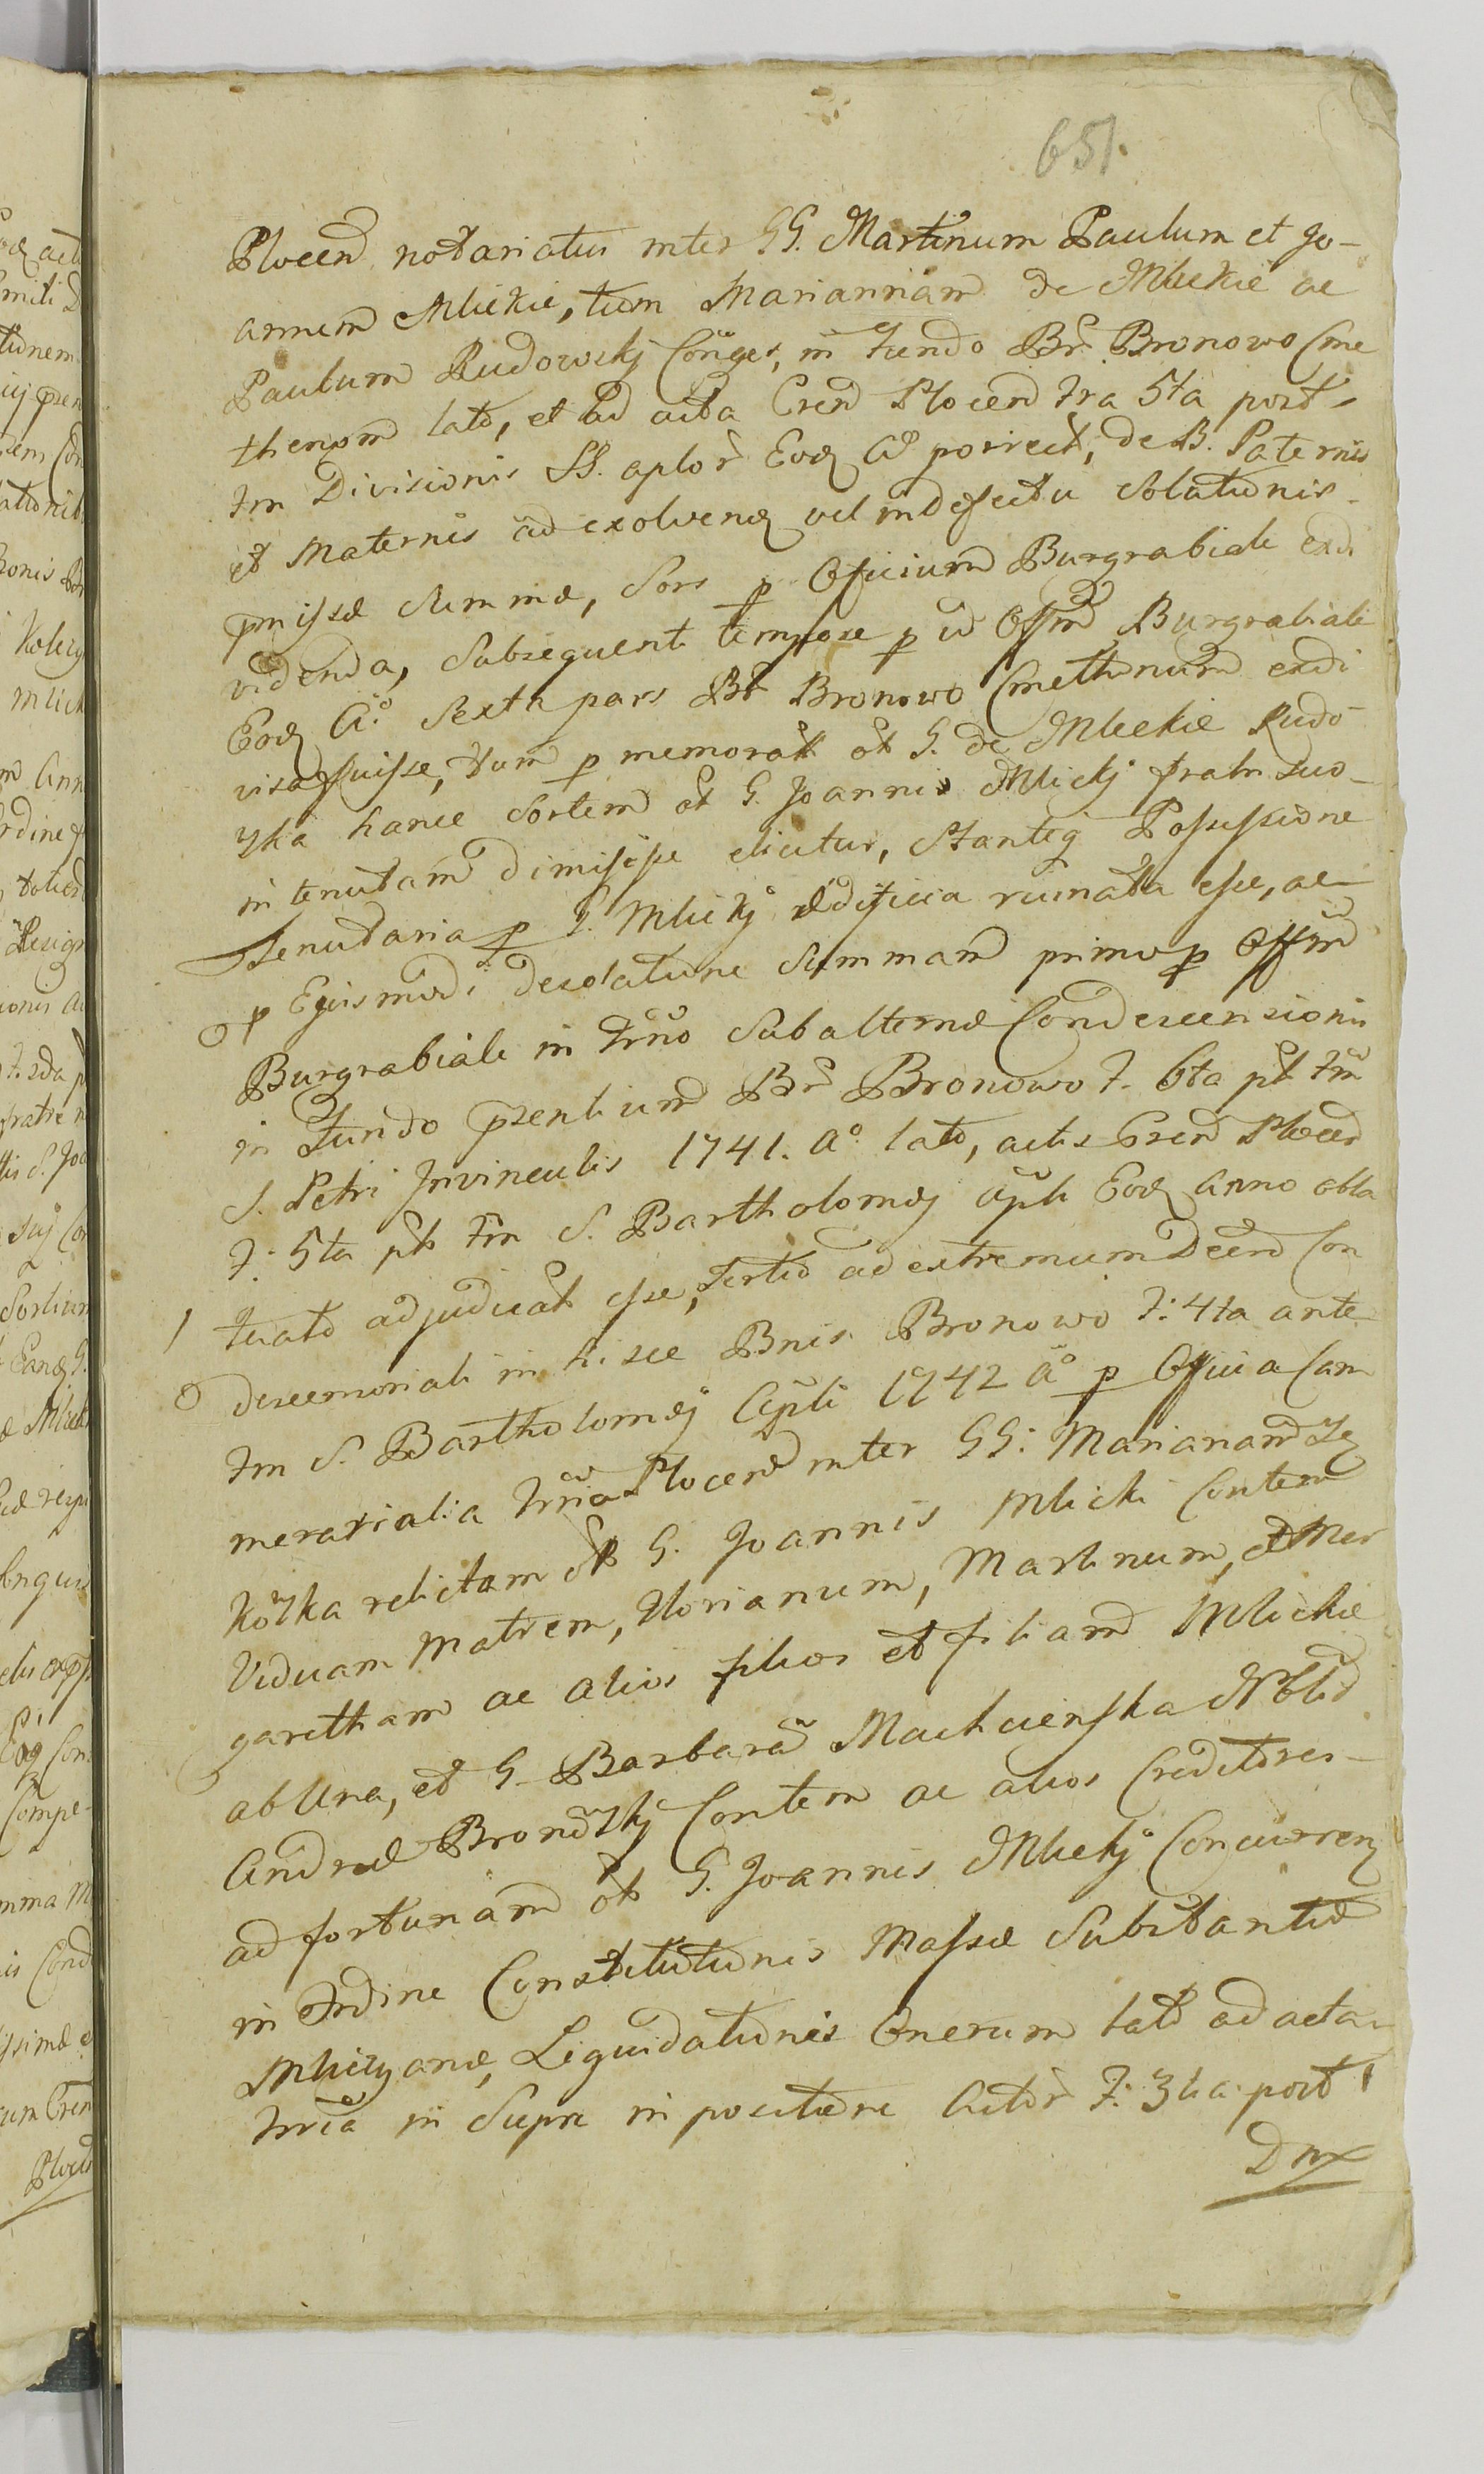 651.
Plocen notariatus inter GG. Martinum Paulum et Jo-
annem Mlickie, tum Mariannam de Mlickie ac
Paulum Rudowskj Conges, in fundo Br. Bronowo Cme
thenom lato, et ad acta Cren Plocen fra 5ta post
fm Divisionis SS. aplor Eod Ao porrect, de B. Paternis
et Maternis ad exolvend vel in defectu Solutionis
pmissæ Summæ, Sors p Officium Burgrabiale exdi
videnda, Subsequenti tempore p id Offm Burgrabiale
Eod Ao. Sexta pars Br Bronowo Cmethonum exdi
visa fuisse, tum p memorat ol G. de Mlickie Rudo
wska hance Sortem ol G. Joannis Mlickj fratri Suo
in tenutam dimisisse dicitur, Stanteq Possessione
Tenutaria p G. Mlickj ædificia ruinata esse, ac
p Ejusmodi desolatione Summam primo p Offm
Burgrabiale in Trno Subalternæ Condescensionis
in Fundo psentium Br Bronowo f. 6ta pt fm
S. Petri Invinculis 1741. Ao. lato, actis Cren Plocen
f. 5ta pt fm S. Bartholomej Apli Eod Anno obla
tuato adjudicat esse, tertio ad extremum Decen Con
descensoriali in hisce Bnis Bronowo f: 4ta ante
fm S. Bartholomej Apli 1742 Ao p Officia Cam
meraria Trria Plocen inter GG: Mariannam Ze
Kowska relictam ol G. Joannis Mlicki Contem
Viduam Matrem, Florianum, Martinum, et Mar
garetham ac alios filios et filiam Mlickie
ab Una, et G. Barbara Machcienska Nobli
Andreæ Bronowskj Contem ac alios Creditores
ad fortunam ol G. Joannis Mlickj Concurren
in Ordine Constitutionis Massæ Substantiæ
Mliczyanæ, Liquidationis Onerum lato ad acta
Trria in Supra in positione Actor f: 3tia post
Dnx